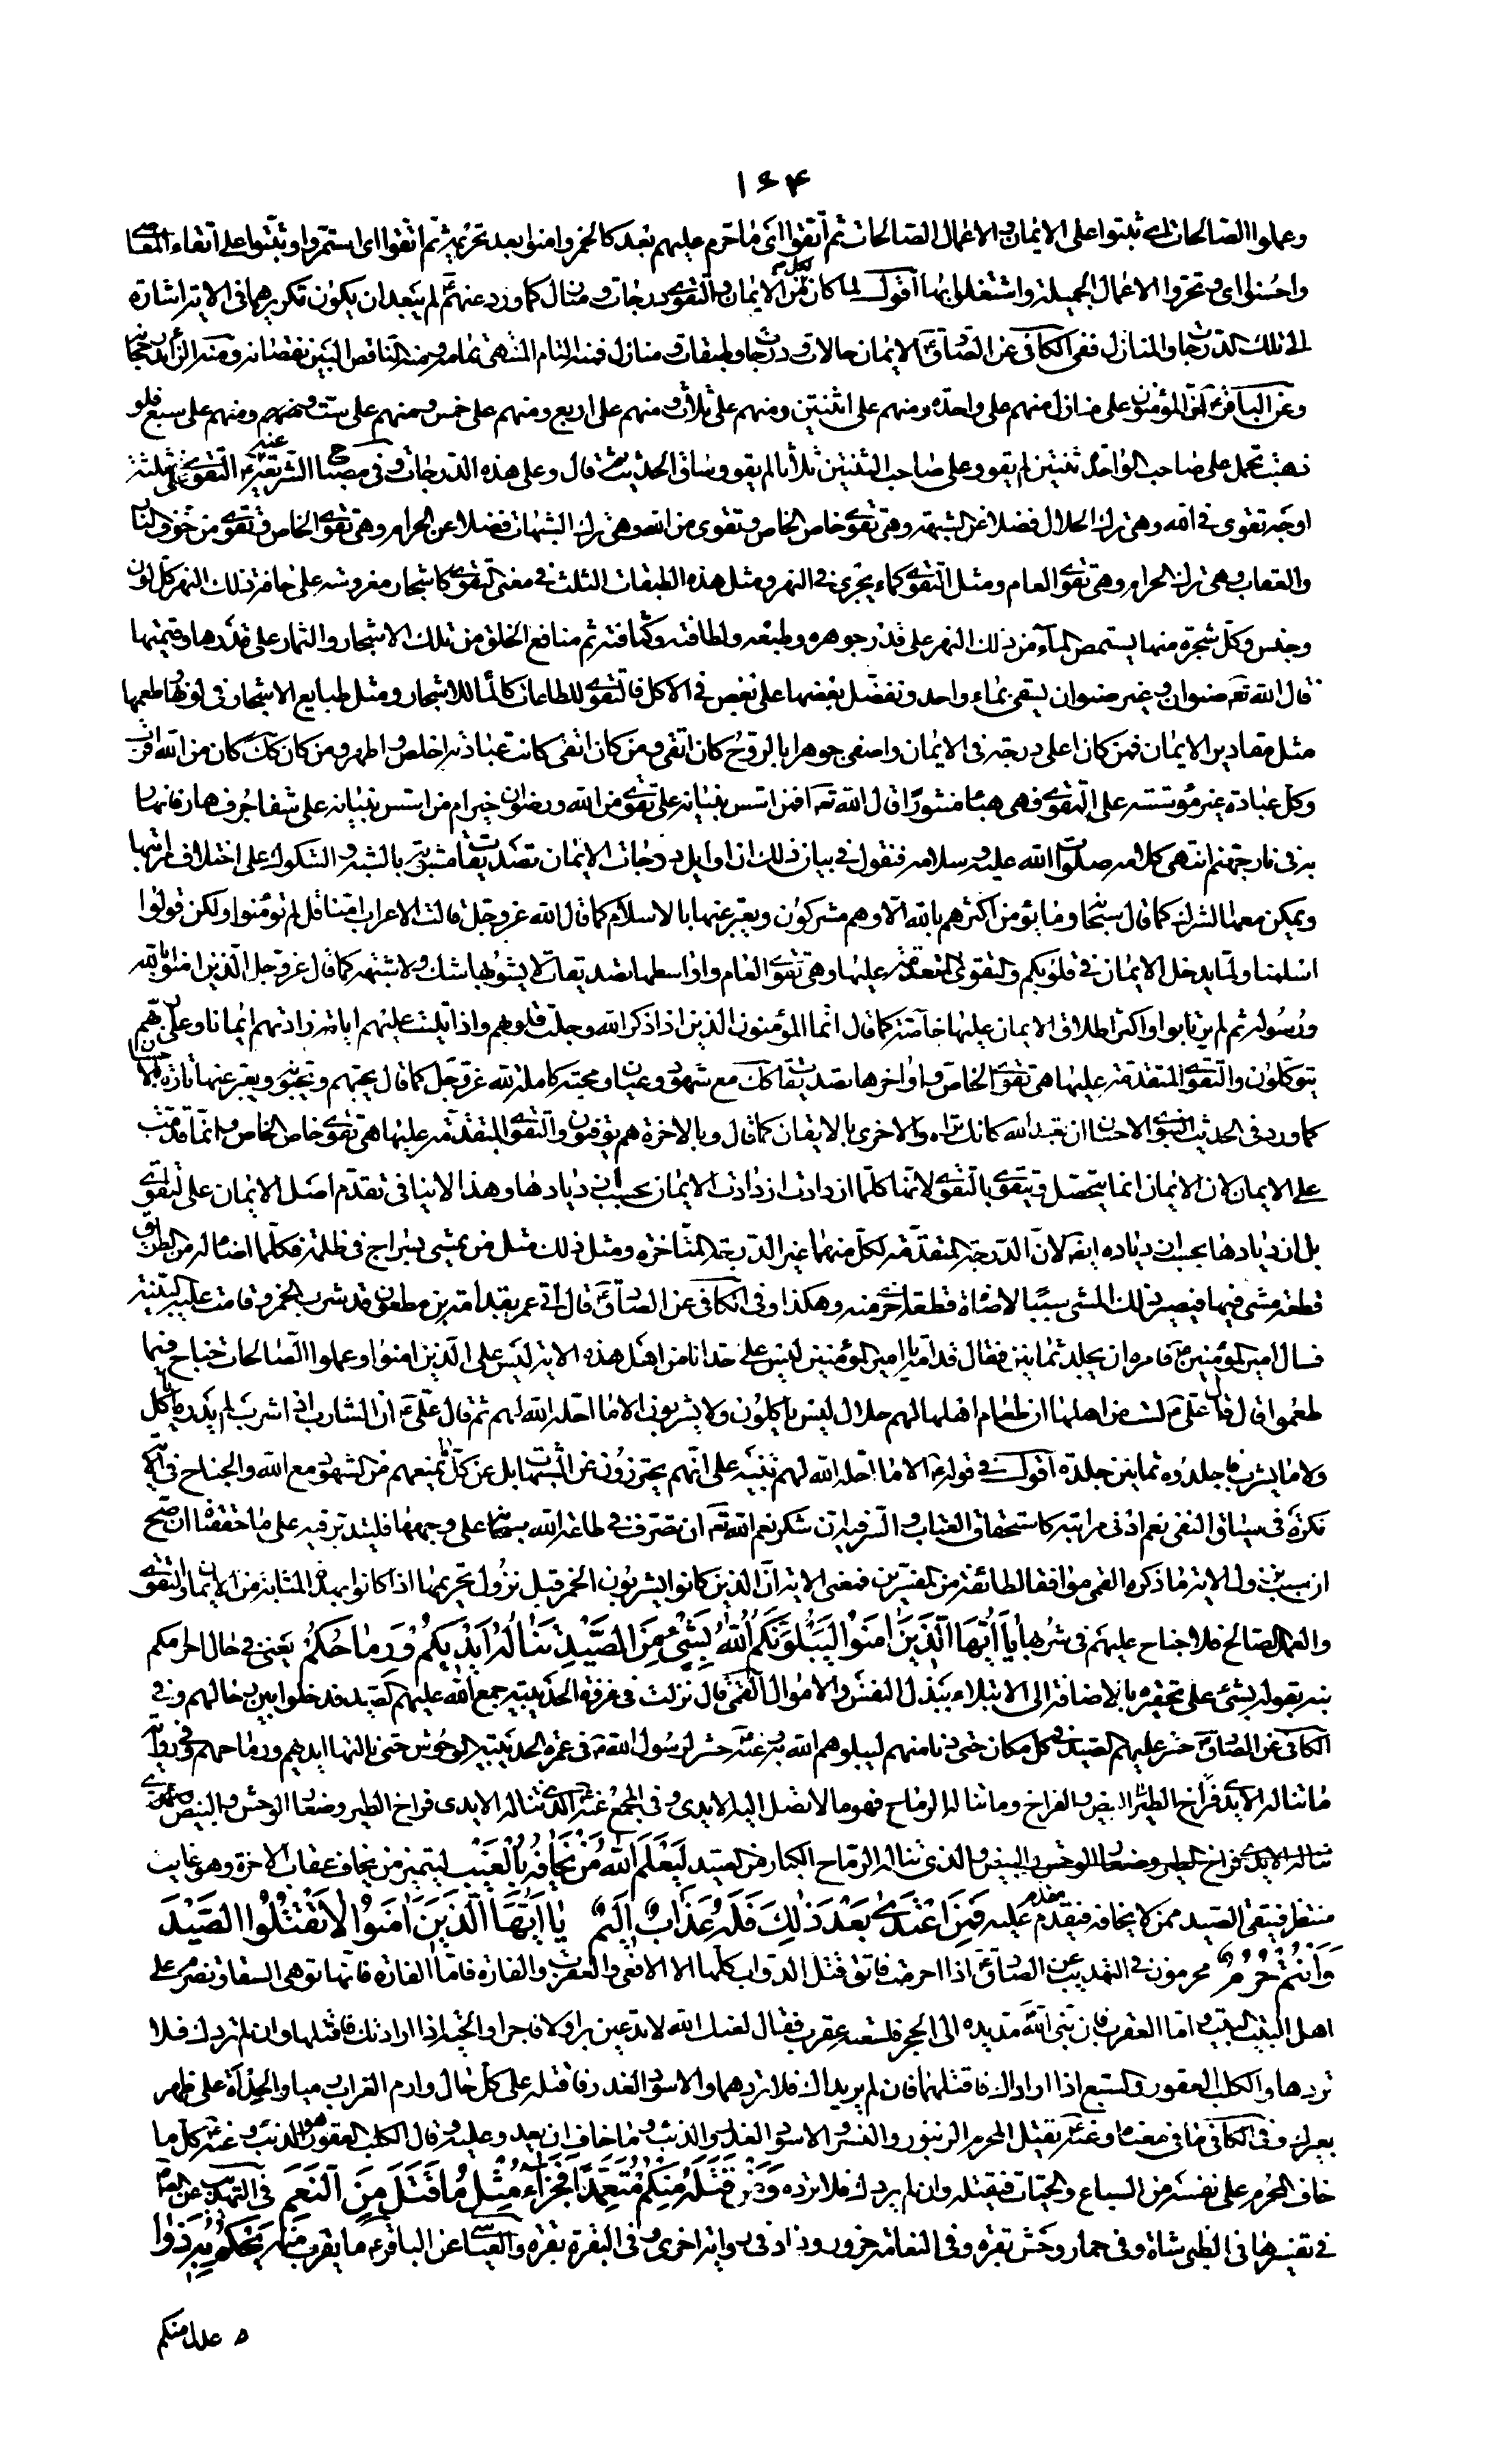 ١٦۴
وعملوا الصالحات اى ثبتوا على الايمان والاعمال الصالحات ثم اتقوا اى ما حرم عليهم بعد كالخمر وامنوا بعد تحريمه ثم اتقوا اى استمروا وثبتوا على اتقاء المعاصى
واحسنوا اى وتحروا الاعمال الجميلة واشتغلوا بها اقول لما كان لكل من الايمان والتقوى درجات ومنازل كما ورد عنهم ع لم يبعد ان يكون تكريرهما فى الاية اشارة
الى تلك الدرجات والمنازل ففى الكافى عن الصادق ع الايمان حالات ودرجات وطبقات ومنازل فمنه التام المنتهى تمامه ومنه الناقص البين نقصانه ومنه الزايد رجحانه
وعن الباقر ع ان المؤمنين على منازل منهم على واحدة ومنهم على اثنتين ومنهم على ثلاث ومنهم على اربع ومنهم على خمس ومنهم على ست ومنهم على سبع فلو
ذهبت تحمل على صاحب الواحدة ثنتين لم يقو وعلى صاحب الثنتين ثلاثا لم يقو وساق الحديث ثم قال وعلى هذه الدرجات وفى مصباح الشريعة عنه ع التقوى على ثلثة
اوجه تقوى فى الله وهى ترك الحلال فضلا عن الشبهة وهى تقوى خاص الخاص وتقوى من الله وهى ترك الشبهات فضلا عن الحرام وهى تقوى الخاص وتقوى من خوف النار
والعقاب وهى ترك الحرام وهى تقوى العام ومثل التقوى كماء يجرى فى النهر ومثل هذه الطبقات الثلث فى معنى التقوى كاشجار مغروسة على حافة ذلك النهر كل لون
وجنس وكل شجرة منها يستمص الماء من ذلك النهر على قدر جوهره وطبعه ولطافته وكثافته ثم منافع الخلق من تلك الاشجار والثمار على قدرها وقيمتها
قال الله تع صنوان وغير صنوان يسقى بماء واحد ونفضل بعضها على بعض فى الاكل فالتقوى للطاعات كالماء للاشجار ومثل طبايع الاشجار فى لونها وطعمها
مثل مقادير الايمان فمن كان اعلى درجة فى الايمان واصفى جوهرا بالروح كان اتقى ومن كان اتقى كانت عبادته اخلص واطهر ومن كان كك كان من الله اقرب
وكل عبادة غير مؤسسة على التقوى فهى هباء منثورا قال الله تع افمن اسس بنيانه على تقوى من الله ورضوان خير ام من اسس بنيانه على شفا جرف هار فانهار
به فى نار جهنم انتهى كلامه صلوات الله عليه وسلامه فنقول فى بيان ذلك ان اوايل درجات الايمان تصديقات مشوبة بالشبه والشكوك على اختلاف مراتبها
ويمكن معها الشرك كما قال سبحانه وما يؤمن اكثرهم بالله الا وهم مشركون ويعبر عنها بالاسلام كما قال الله عز وجل قالت الاعراب امنا قل لم تؤمنوا ولكن قولوا
اسلمنا ولما يدخل الايمان فى قلوبكم والتقوى المتقدمة عليها هى تقوى العام واواسطها تصديقات لا يشوبها شك ولا شبهة كما قال عز وجل الذين امنوا بالله
ورسوله ثم لم يرتابوا واكثر اطلاق الايمان عليها خاصة كما قال انما المؤمنون الذين اذا ذكر الله وجلت قلوبهم واذا تليت عليهم اياته زادتهم ايمانا وعلى ربهم
يتوكلون والتقوى المتقدمة عليها هى تقوى الخاص واواخرها تصديقات كك مع شهود وعيان ومحبة كاملة لله عز وجل كما قال يحبهم ويحبونه ويعبر عنها تارة بالاحسان
كما ورد فى الحديث النبوى الاحسان ان تعبد الله كانك تراه والاخرى بالايقان كما قال وبالاخرة هم يوقنون والتقوى المتقدمة عليها هى تقوى خاص الخاص وانما قدمت
على الايمان لان الايمان انما يتحصل ويتقوى بالتقوى لانها كلما ازدادت ازداد الايمان بحسب ازديادها وهذا لا ينافى تقدم اصل الايمان على التقوى
بل ازديادها بحسب ازدياده ايضا لان الدرجة المتقدمة لكل منهما غير الدرجة المتاخرة ومثل ذلك مثل من يمشى بسراج فى ظلمة فكلما اضاء له من الطريق
قطعة مشى فيها فيصير ذلك المشى سببا لاضاءة قطعة اخرى منه وهكذا وفى الكافى عن الصادق ع قال اتى عمر بقدامة بن مظعون قد شرب الخمر وقامت عليه البينة
فسال امير المؤمنين ع فامره ان يجلد ثمانين فقال قدامة يا امير المؤمنين ليس على حد انا من اهل هذه الاية ليس على الذين امنوا وعملوا الصالحات جناح فيما
طعموا قال فقال على ع لست من اهلها ان طعام اهلها لهم حلال ليس ياكلون ولا يشربون الا ما احله الله لهم ثم قال على ع ان الشارب اذا شرب لم يدر ما ياكل
ولا ما يشرب فاجلدوه ثمانين جلدة اقول فى قوله ع الا ما احله الله لهم تنبيه على انهم يحترزون عن الشبهات بل عن كل ما يمنعهم من الشهود مع الله والجناح فى الاية
نكرة فى سياق النفى يعم ادنى مراتبه كاستحقاق العتاب والسر فيه ان شكر نعم الله تع ان تصرف فى طاعة الله سبحانه على وجهها فليتدبر فيه على ما حققناه ان صح
ان سبب نزول الاية ما ذكره القمى موافقا لطائفة من المفسرين فمعنى الاية ان الذين كانوا يشربون الخمر قبل نزول تحريمها اذا كانوا بهذه المثابة من الايمان والتقوى
والعمل الصالح فلا جناح عليهم فى شربها يا ايها الذين امنوا ليبلونكم الله بشىء من الصيد تناله ايديكم ورماحكم يعنى فى حال احرامكم
نبه بقوله بشىء على تحقيره بالاضافة الى الابتلاء ببذل النفس والاموال القمى قال نزلت فى غزوة الحديبية جمع الله عليهم الصيد فدخلوا بين رحالهم وفى
الكافى عن الصادق ع حشر عليهم الصيد فى كل مكان حتى دنا منهم ليبلوهم الله به وعنه ع حشر لرسول الله ص فى عمرة الحديبية الوحوش حتى نالتها ايديهم ورماحهم وفى رواية
ما تناله الايدى فراخ الطير البيض والفراخ وما تناله الرماح فهو ما لا تصل اليه الايدى وفى المجمع عنه ع الذى تناله الايدى فراخ الطير وصغار الوحش والبيض
تناله الايدى فراخ الطير وصغار الوحش والبيض والذى تناله الرماح الكبار من الصيد ليعلم الله من يخافه بالغيب ليتميز من يخاف عقاب الاخرة وهو غايب
منتظر فيتقى الصيد ممن لا يخافه فيقدم عليه فمن اعتدى بعد ذلك فله عذاب اليم يا ايها الذين امنوا لا تقتلوا الصيد
وانتم حرم محرمون فى التهذيب عن الصادق ع اذا احرمت فاتق قتل الدواب كلها الا الافعى والعقرب والفارة فاما الفارة فانها توهى السقاء وتضرم على
اهل البيت البيت واما العقرب فان نبى الله ص مد يده الى الحجر فلسعته عقرب فقال لعنك الله لا تدعين برا ولا فاجرا والحية اذا ارادتك فاقتلها وان لم تردك فلا
تردها والكلب العقور والسبع اذا ارادك فاقتلهما فان لم يريداك فلا تردهما والاسود الغدر فاقتله على كل حال وارم الغراب رميا والحدأة على ظهر
بعيرك وفى الكافى ما فى معناه وعنه ع يقتل المحرم الزنبور والنسر والاسود الغدر والذئب وما خاف ان يعدو عليه وقال الكلب العقور هو الذئب وعنه ع كل ما
خاف المحرم على نفسه من السباع والحيات فيقتله وان لم يردك فلا ترده ومن قتله منكم متعمدا فجزاء مثل ما قتل من النعم فى التهذيب عن الصادق ع
فى تفسيرها فى الظبى شاة وفى حمار وحش بقرة وفى النعامة جزور وزاد فى رواية اخرى وفى البقرة بقرة والعياشى عن الباقر ع ما يقرب منه يحكم به ذوا
عدل منكم